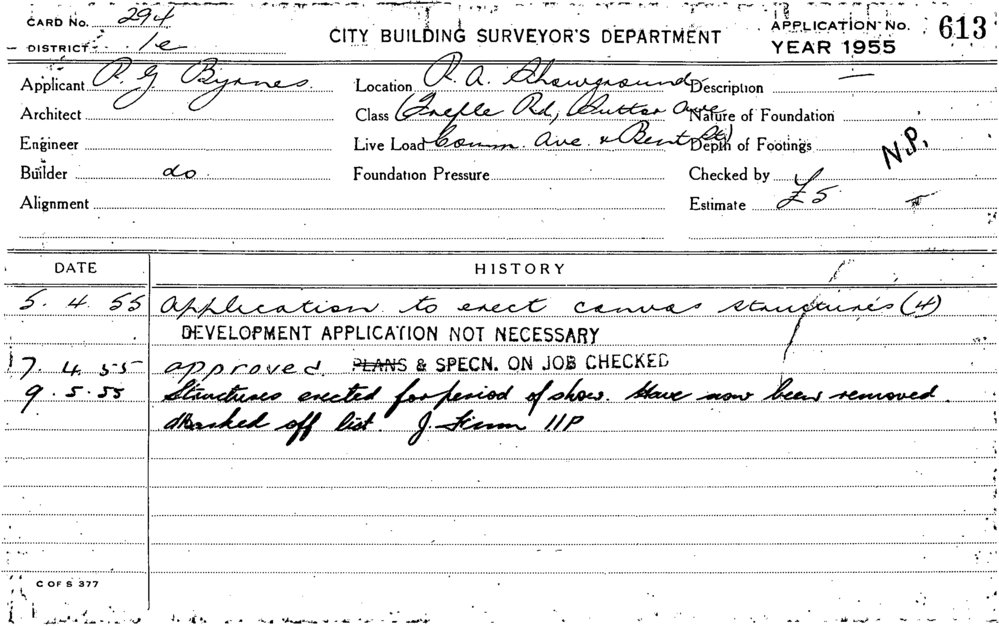 CARD No. 294
DISTRICT 1e
CITY BUILDING SURVEYOR'S DEPARTMENT
APPLICATION No. 613
YEAR 1955
Applicant Byrnes
Location R. A. Showground
Description —
Architect
Class Rd, Ave
Nature of Foundation
Engineer
Live Load Comm. Ave. & Bent St)
Depth of Footings
N.P.
Builder do
Foundation Pressure
Checked by
Alignment
Estimate £5
DATE HISTORY
5. 4. 55 Application to erect canvas structures (4)
DEVELOPMENT APPLICATION NOT NECESSARY
7. 4. 55 approved. PLANS & SPECN. ON JOB CHECKED
9. 5. 55 Structures erected for period of show. Have now been removed.
Marked off list. J. 11P
C OF S 377